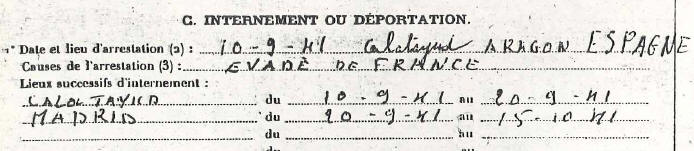 C. INTERNEMENT OU DÉPORTATION.
1° Date et lieu d'arrestation (2) : 10-9-41 Calatayud ARAGON ESPAGNE
Causes de l'arrestation (3) : EVADÈ DE FRANCE
Lieux successifs d'internement :
CALAC TAYUD du 10-9-41 au 20-9-41
MADRID du 20-9-41 au 15-10 41
du au